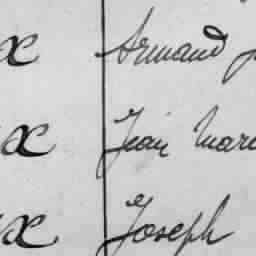 x Armand J
x Jean Marc
x Joseph